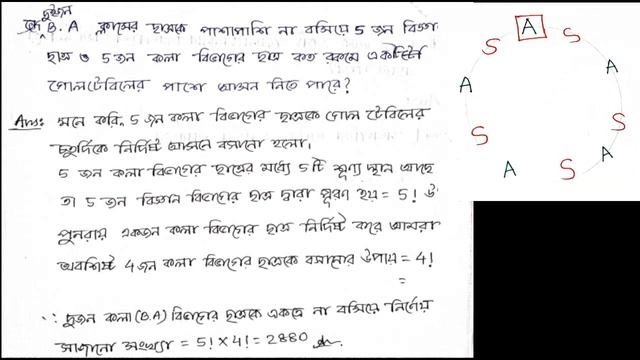 দুইজন
B.A ক্লাসের ছাত্রকে পাশাপাশি না বসিয়ে 5 জন বিজ্ঞান
ছাত্র ও 5 জন কলা বিভাগের ছাত্র কত রকমে একটি
গোলটেবিলের পাশে আসন নিতে পারে?
Ans: মনে করি, 5 জন কলা বিভাগের ছাত্রকে গোল টেবিলের
চতুর্দিকে নির্দিষ্ট আসনে বসানো হলো।
5 জন কলা বিভাগের ছাত্রের মধ্যে 5 টি শূণ্য স্থান আছে
তা 5 জন বিজ্ঞান বিভাগের ছাত্র দ্বারা পূরণ হয় = 5! উ
পুনরায় একজন কলা বিভাগের ছাত্র নির্দিষ্ট করে আমরা
অবশিষ্ট 4 জন কলা বিভাগের ছাত্রকে বসানোর উপায় = 4!
∴ দুজন কলা (B.A) বিভাগের ছাত্রকে একত্রে না বসিয়ে নির্ণেয়
সাজানো সংখ্যা = 5! × 4! = 2880
A
S
S
A
A
S
S
A
A
S